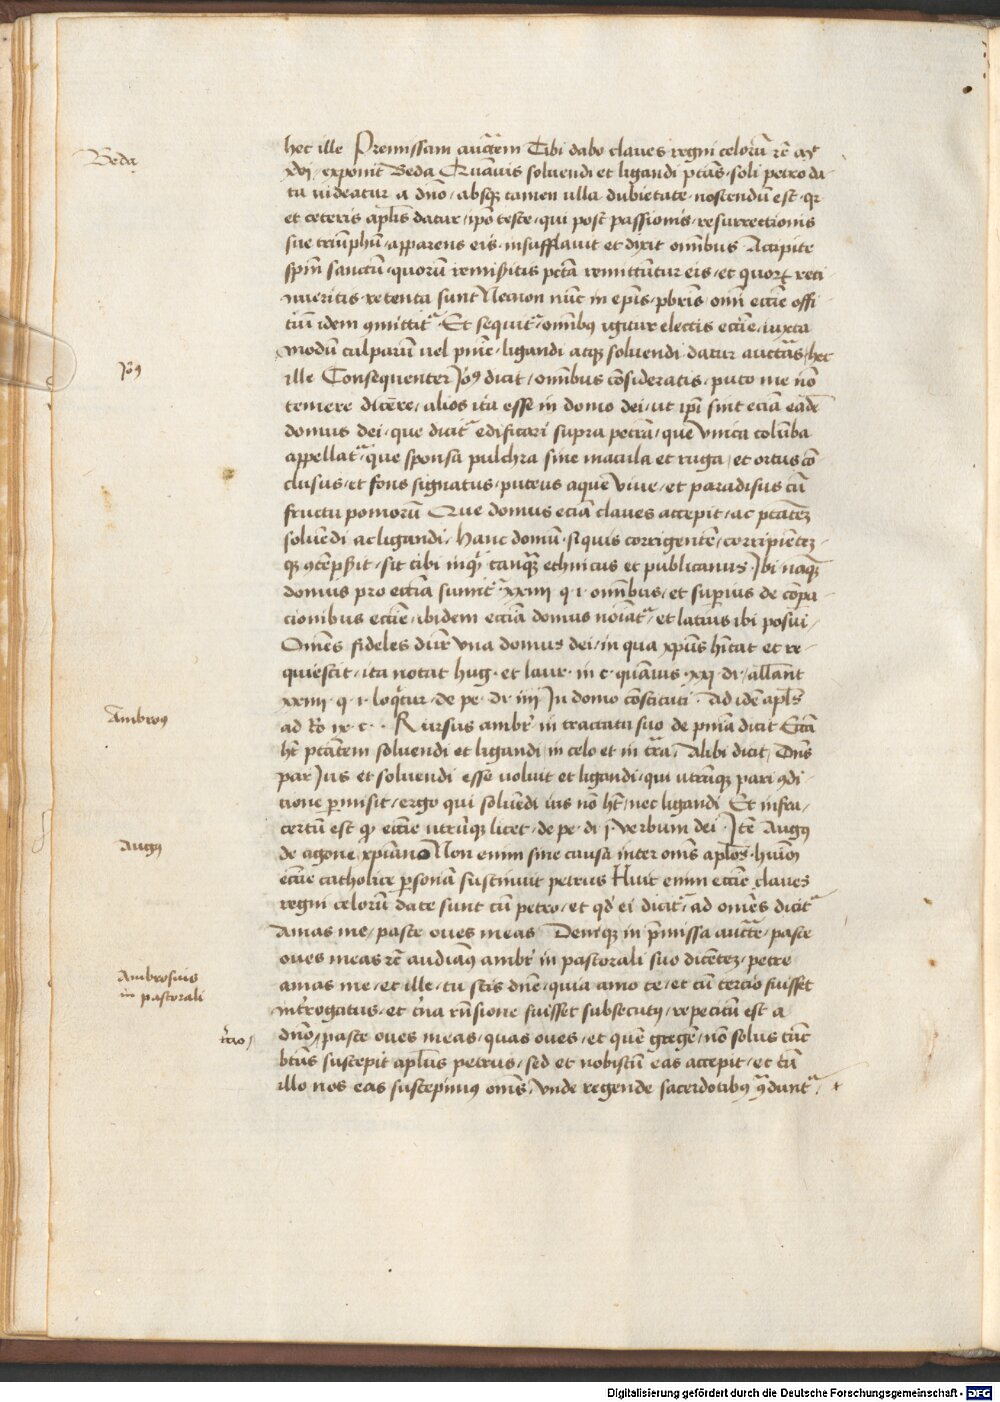 hec ille Premissam auctem Tibi dabo claves regni celorū rē
Beda
xvi, exponit Beda Quāuis soluendi et ligandi ptās soli petro da
tū videatur a dnō, absqȝ tamen ulla dubietate noscendū est qr
et ceteris aplīs datur, ipō teste, qui post passionis resurrectionis
sue triūphū, apparens eis insufflauit et dixit omībus Accipite
spm̄ sanctū, quorū remisitis pctā remittūtur eis, et quorꝝ reti
nueritis retenta sunt Necnon nūc in epīs, pbrīs omī eccīe offi
tiū idem ꝯmittitᵉ Et sequitᵉ omībus igitur electis eccīe, iuxta
modū culparū uel pnīe, ligandi atqȝ soluendi datur auctās, hec
Jo9
ille Consequenter Jo9 dicit, omībus cōsideratis, puto me nō
temere dicere, alios ita esse in domo dei, ut ipī sint eciā eadē
domus dei, que dicitᵉ edificari supra petrā, que vnica colūba
appellatᵉ, que sponsa pulchra sine macula et ruga, et ortus cō
clusus, et fons signatus, puteus aque viue, et paradisus cū
fructu pomorū Que domus eciā claves accepit, ac ptatēȝ
soluēdi ac ligandi, hanc domū siquis corrigentē, corripientēȝ
qȝ ꝯtēpsit, sit tibi inqt tanqȝ ethnicus et publicanus Ibi naqȝ
domus pro eccīa sumitᵉ xxiiii q i omībus, et superius de cōpa
cionibus eccīe, ibidem eccīa domus noīatᵉ, et latius ibi posui,
Omēs fideles dūr vna domus dei, in qua xpūs hītat et re
quiescit, ita notat hug et laur in c quāuis xxi di, all'ant
xxiiii q i loqtur de pe di iiii In domo cōstituti Ad idē apls
Ambros9
ad ro ix c Rursus ambr in tractatu suo de pnīa dicit Eccīa
hꝫ ptatem soluendi et ligandi in celo et in trā, Alibi dicit, Dns
par Ius et soluendi esse uoluit et ligandi, qui utrūqȝ pari ꝯdi
tione pmisit, ergo qui soluēdi ius nō hꝫ, nec ligandi Et infra,
certū est qȝ eccīe utrūqȝ licet, de pe di i verbum dei Itē Aug9
Aug9
de agone xpiāno Non enim sine causa inter omīs aplōs huius
eccīe catholice psonā sustinuit petrus Huic enim eccīe claves
regni celorū date sunt cū petro, et qd ei dicitᵉ, ad omēs dicitᵉ
Amas me, pasce oues meas Deniqȝ in pmissa auctē, pasce
oues meas rē audiam9 ambr in pastorali suo dicentēȝ, petre
Ambrosius
in pastorali
amas me, et ille, tu scis dnē, quia amo te, et cū tercio fuisset
introgatus, et trīa rnsione fuisset subsecut9, repetitū est a
tercio
dnō, pasce oues meas, quas oues, et quē gregē, nō solus tūc
btūs suscepit aplūs petrus, sed et nobiscū eas accepit, et cū
illo nos eas suscepimus omīs, vnde regende sacerdotibus ꝯduntᵉ,
Digitalisierung gefördert durch die Deutsche Forschungsgemeinschaft - DFG